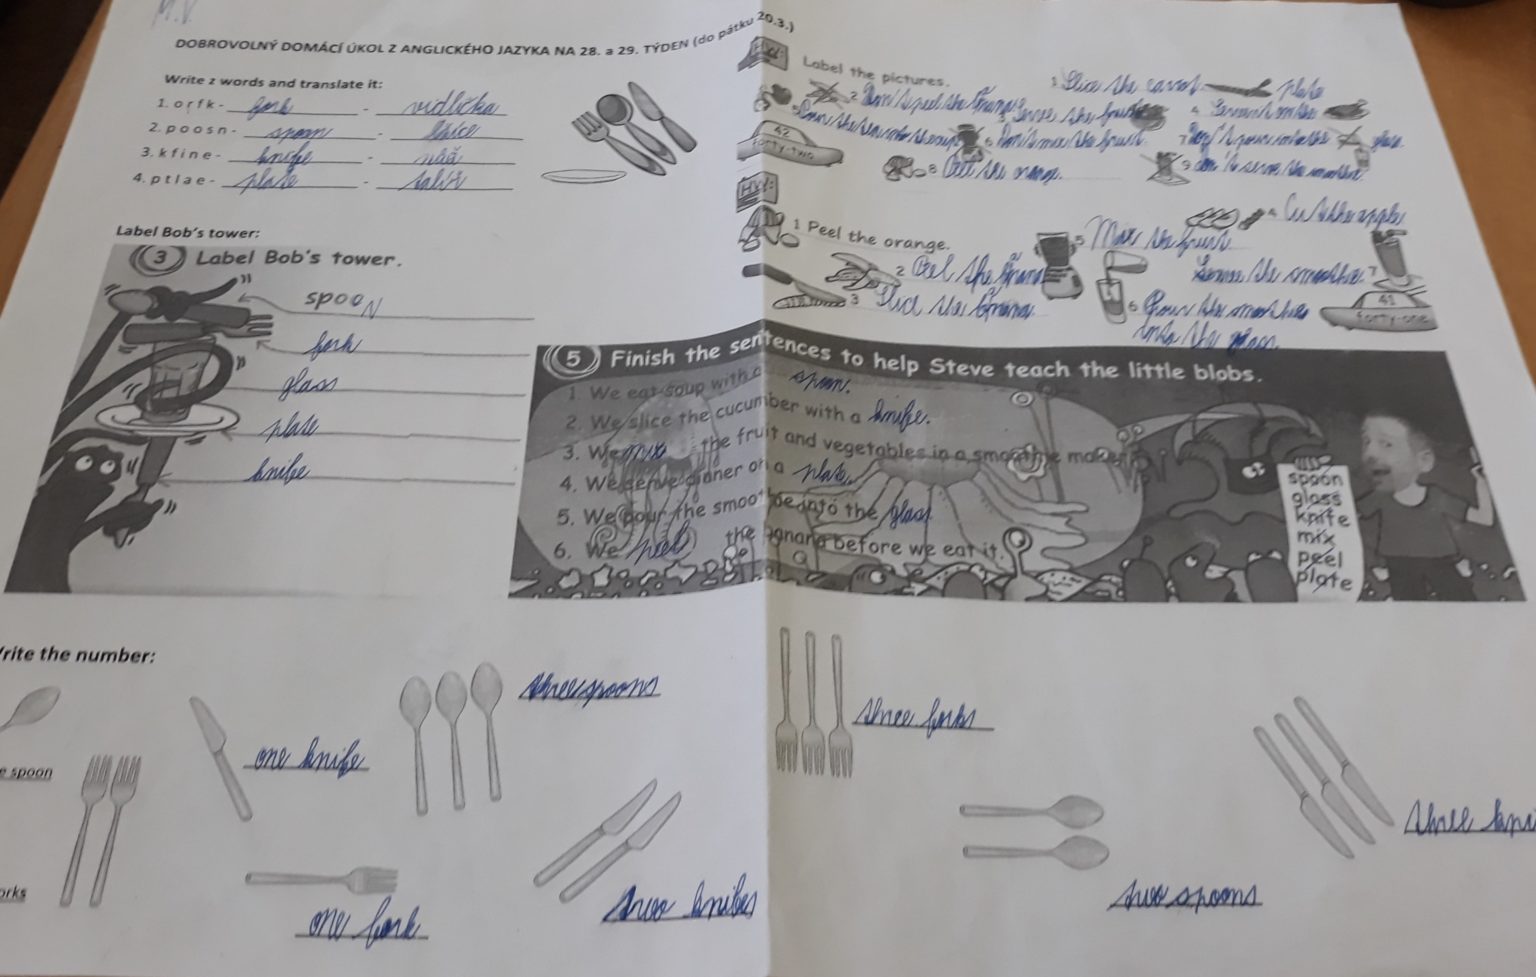 M.V.
DOBROVOLNÝ DOMÁCÍ ÚKOL Z ANGLICKÉHO JAZYKA NA 28. a 29. TÝDEN (do pátku 20.3.)
Write z words and translate it:
1. o r f k - fork - vidlička
2. p o o s n - spoon - lžíce
3. k f i n e - knife - nůž
4. p t l a e - plate - talíř
Label Bob's tower:
3 Label Bob's tower.
spooN
fork
glass
plate
knife
HW:
Label the pictures.
1 Slice the carrot plate
2 Don't peel the
Serve the fruit
4
5 Pour the tea into the cup
6 Don't mix the fruit.
7 Don't pour into the glass.
8 Peel the orange.
9 Don't serve the smoothie.
42
forty-two
HW:
1 Peel the orange.
2 Peel the
3 Slice the
4 Cut the apple
5 Mix the fruit
6 Pour the smoothie
into the glass.
Serve the smoothie. 7
41
forty-one
5 Finish the sentences to help Steve teach the little blobs.
1. We eat soup with a spoon.
2. We slice the cucumber with a knife.
3. We mix the fruit and vegetables in a smoothie maker.
4. We serve dinner on a plate.
5. We pour the smoothie into the glass.
6. We peel the banana before we eat it.
spoon
glass
knife
mix
peel
plate
Write the number:
three spoons
three forks
one knife
e spoon
three kni
orks
two knifes
two spoons
one fork